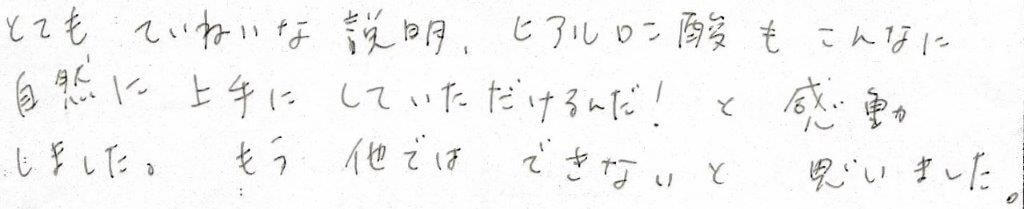 とても ていねいな 説明、ヒアルロン酸も こんなに
自然に 上手に していただけるんだ！と 感動
しました。もう 他では できないと 思いました。